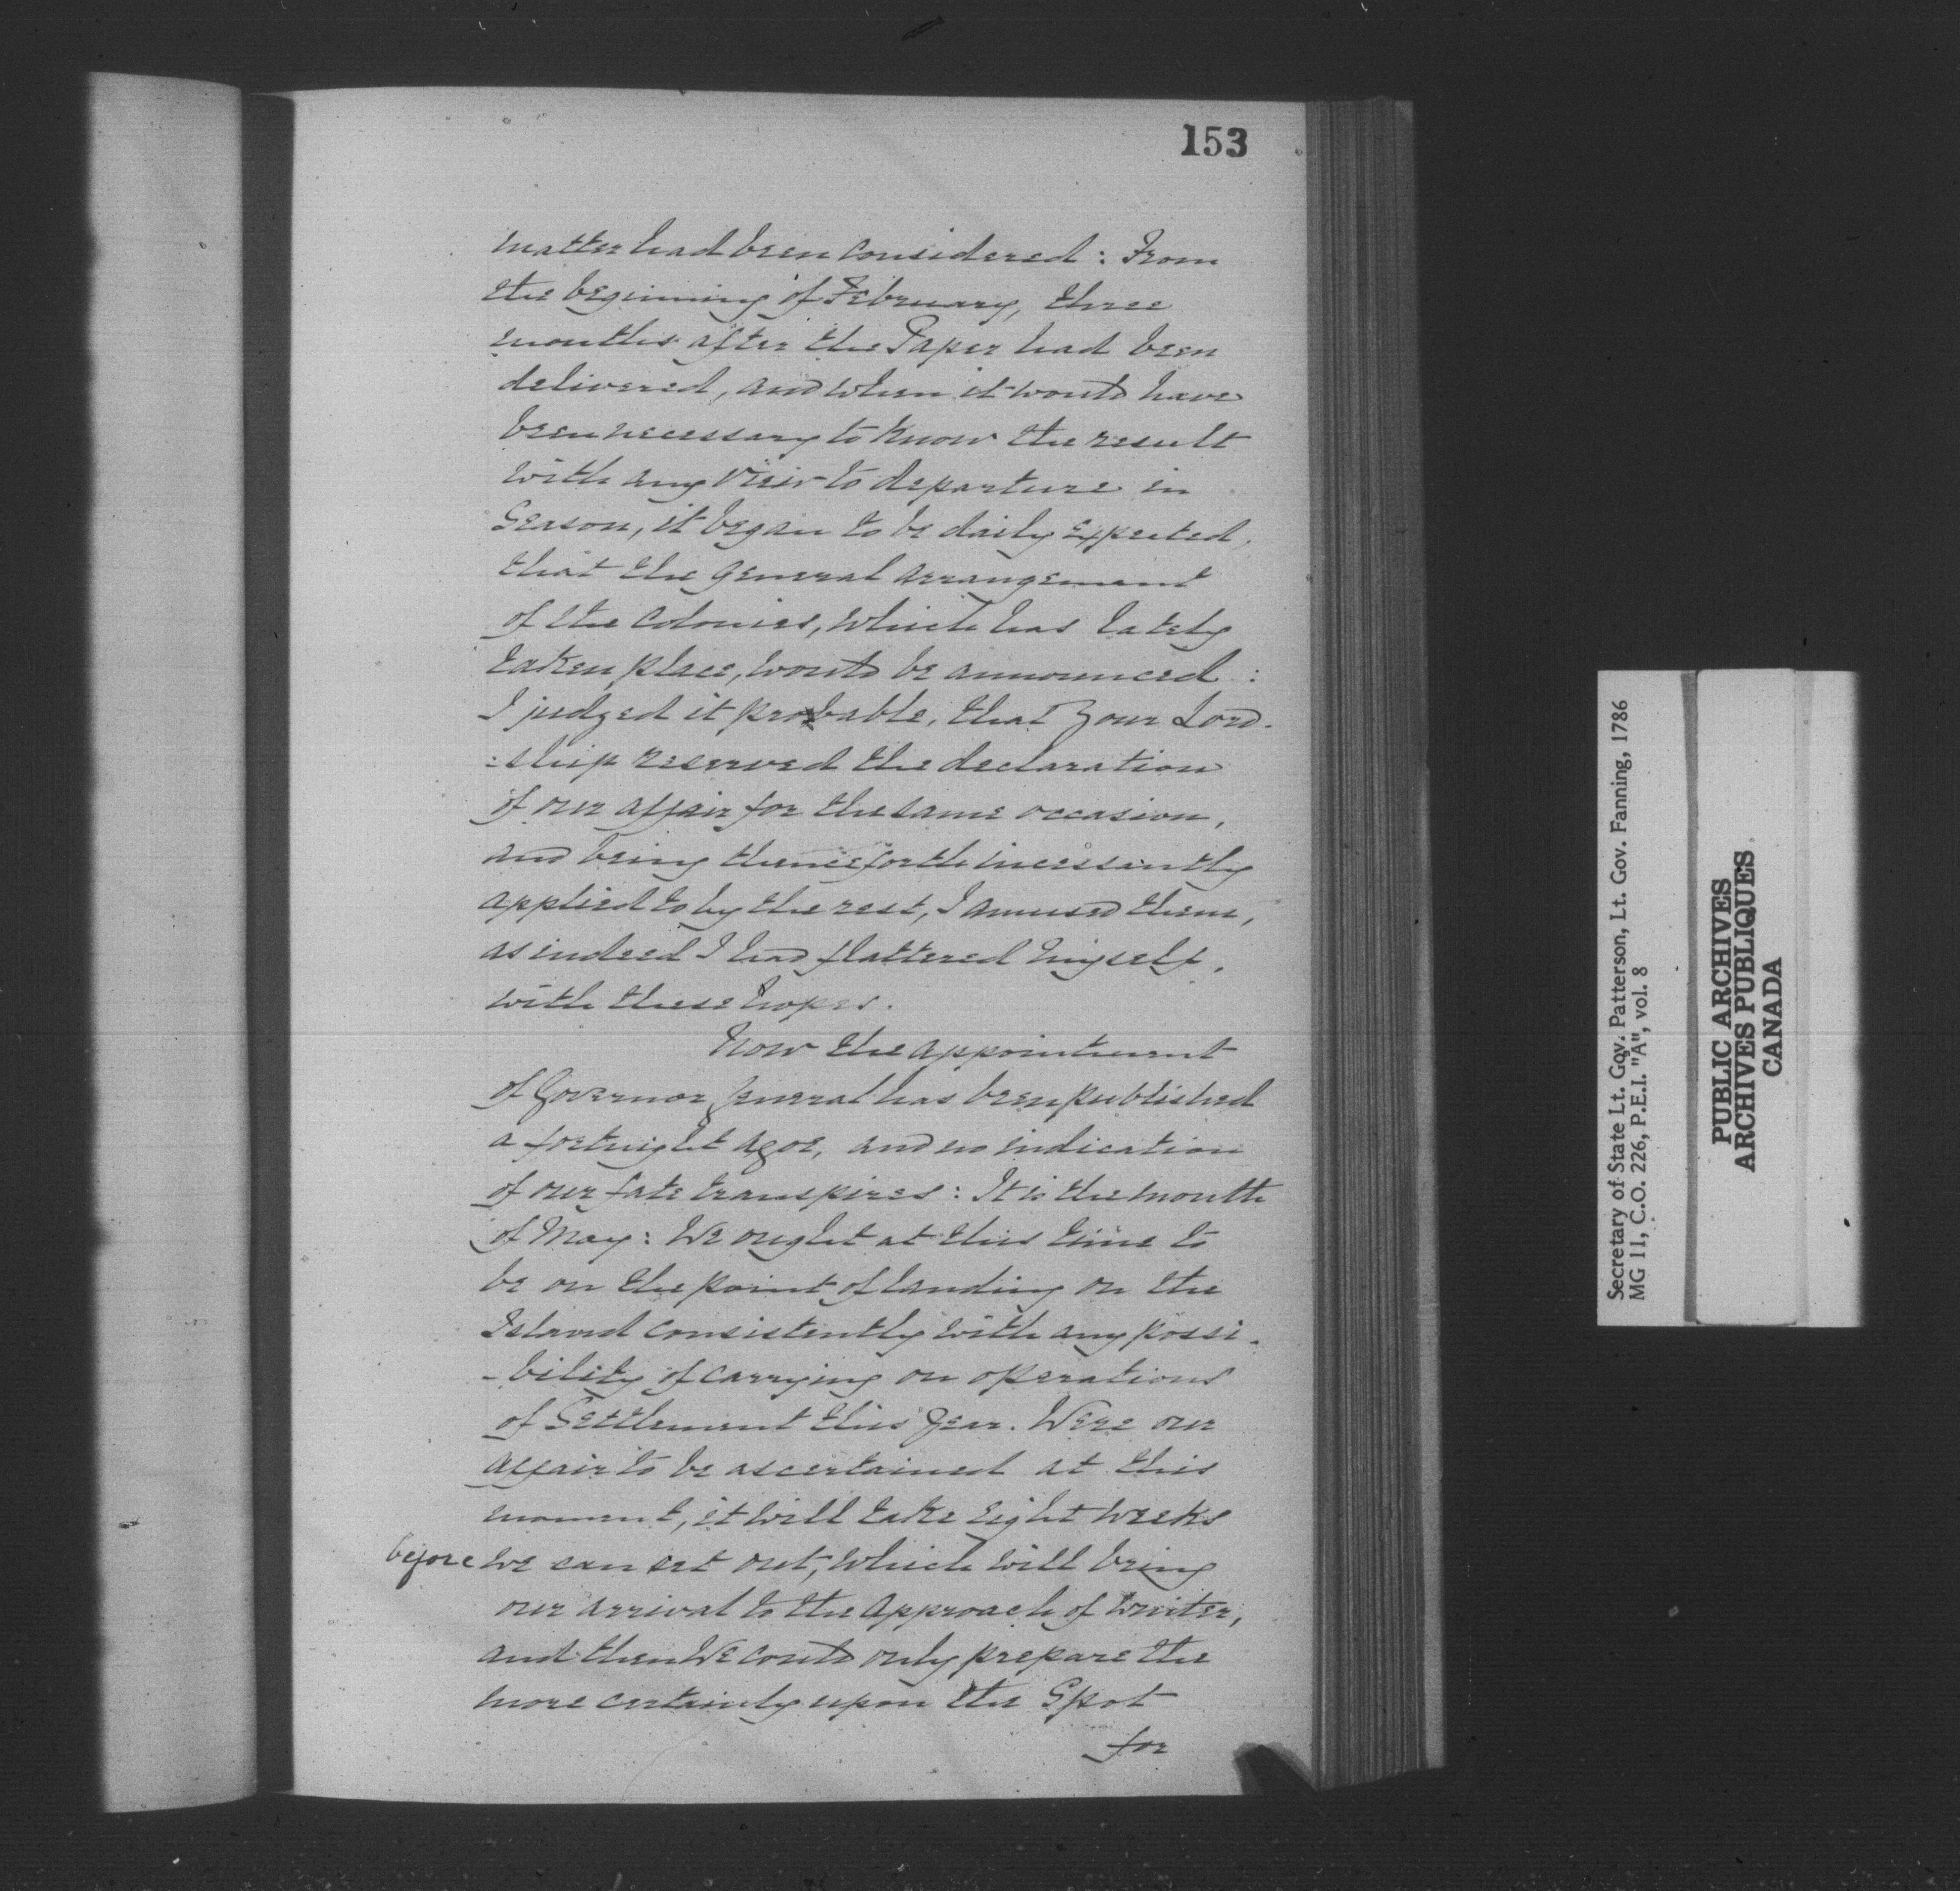 153
matter had been considered: From
the beginning of February, three
months after the Paper had been
delivered, and when it would have
been necessary to know the result
with any View to departure in
Season, it began to be daily expected,
that the general arrangement
of the Colonies, which has lately
taken place, would be announced:
I judged it probable, that Your Lord-
:ship reserved the declaration
of our affair for the same occasion,
and being thenceforth incessantly
applied to by the rest, I amused them,
as indeed I had flattered myself,
with these hopes.
Now the appointment
of Governor General has been published
a fortnight agoe, and no indication
of our fate transpires: It is the month
of May: We ought at this time to
be on the point of landing on the
Island consistently with any possi-
-bility of carrying on operations
of Settlement this Year. Were our
affair to be ascertained at this
moment, it will take eight weeks
before we can set out, which will bring
our arrival to the approach of Winter,
and then We could only prepare the
more certainly upon the Spot
for
Secretary of State Lt. Gov. Patterson, Lt. Gov. Fanning, 1786
MG 11, C.O. 226, P.E.I. "A", vol. 8
PUBLIC ARCHIVES
ARCHIVES PUBLIQUES
CANADA